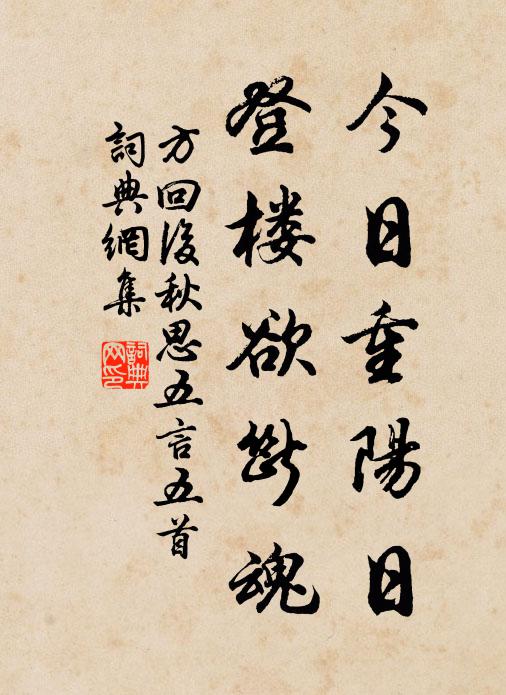 今日重陽日
登楼欲斷魂
方回後秋思五言五首
詞典網集
詞典網印